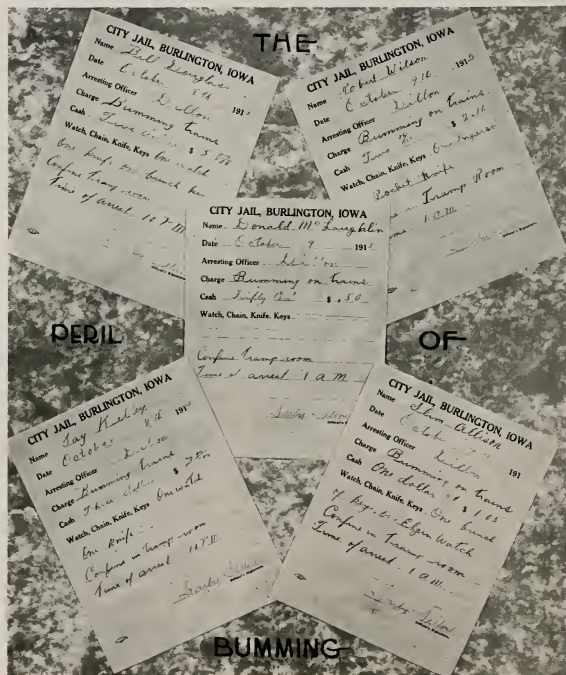 THE
CITY JAIL, BURLINGTON, IOWA
Name Bill
Date October 8th 191
Arresting Officer Dillon
Charge Bumming trains
Cash $ 5
Watch, Chain, Knife, Keys One watch
One knife bunch
Confine Tramp room
Time of arrest 10 P.M.
CITY JAIL, BURLINGTON, IOWA
Name Robert Wilson
Date October 9th 191
Arresting Officer Dillon
Charge Bumming on trains
Cash Two $ 2.10
Watch, Chain, Knife, Keys One Ingersol
Pocket Knife
in Tramp Room
1 A.M.
CITY JAIL, BURLINGTON, IOWA
Name Donald McLaughlin
Date October 9 191
Arresting Officer Dillon
Charge Bumming on trains
Cash $ .50
Watch, Chain, Knife, Keys
Confine Tramp room
Time of arrest 1 A M
PERIL
OF
CITY JAIL, BURLINGTON, IOWA
Name
Date October 8th 191
Arresting Officer Dillon
Charge Bumming trains
Cash Three $
Watch, Chain, Knife, Keys One watch
One knife
Confine in Tramp room
Time of arrest 10 P.M.
CITY JAIL, BURLINGTON, IOWA
Name Allison
Date 191
Arresting Officer Dillon
Charge Bumming on trains
Cash One dollar $ 1.
Watch, Chain, Knife, Keys One bunch
of keys Elgin Watch
Confine in Tramp room
Time of arrest 1 A.M.
BUMMING